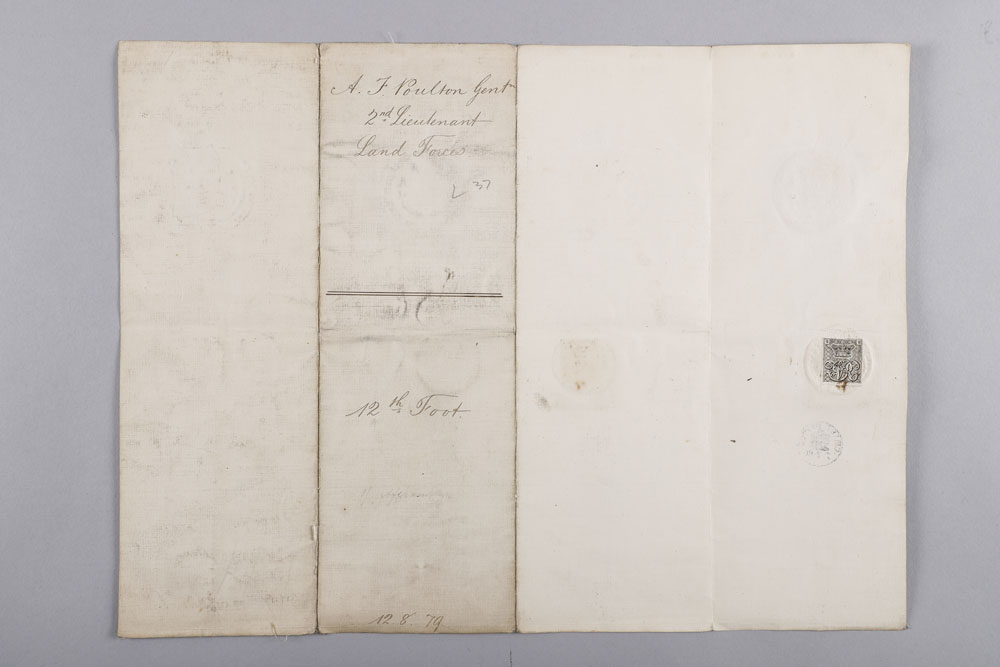 A. F Poulton Gent
2nd Lieutenant
Land Forces
37
12th Foot
12 8 79
VR